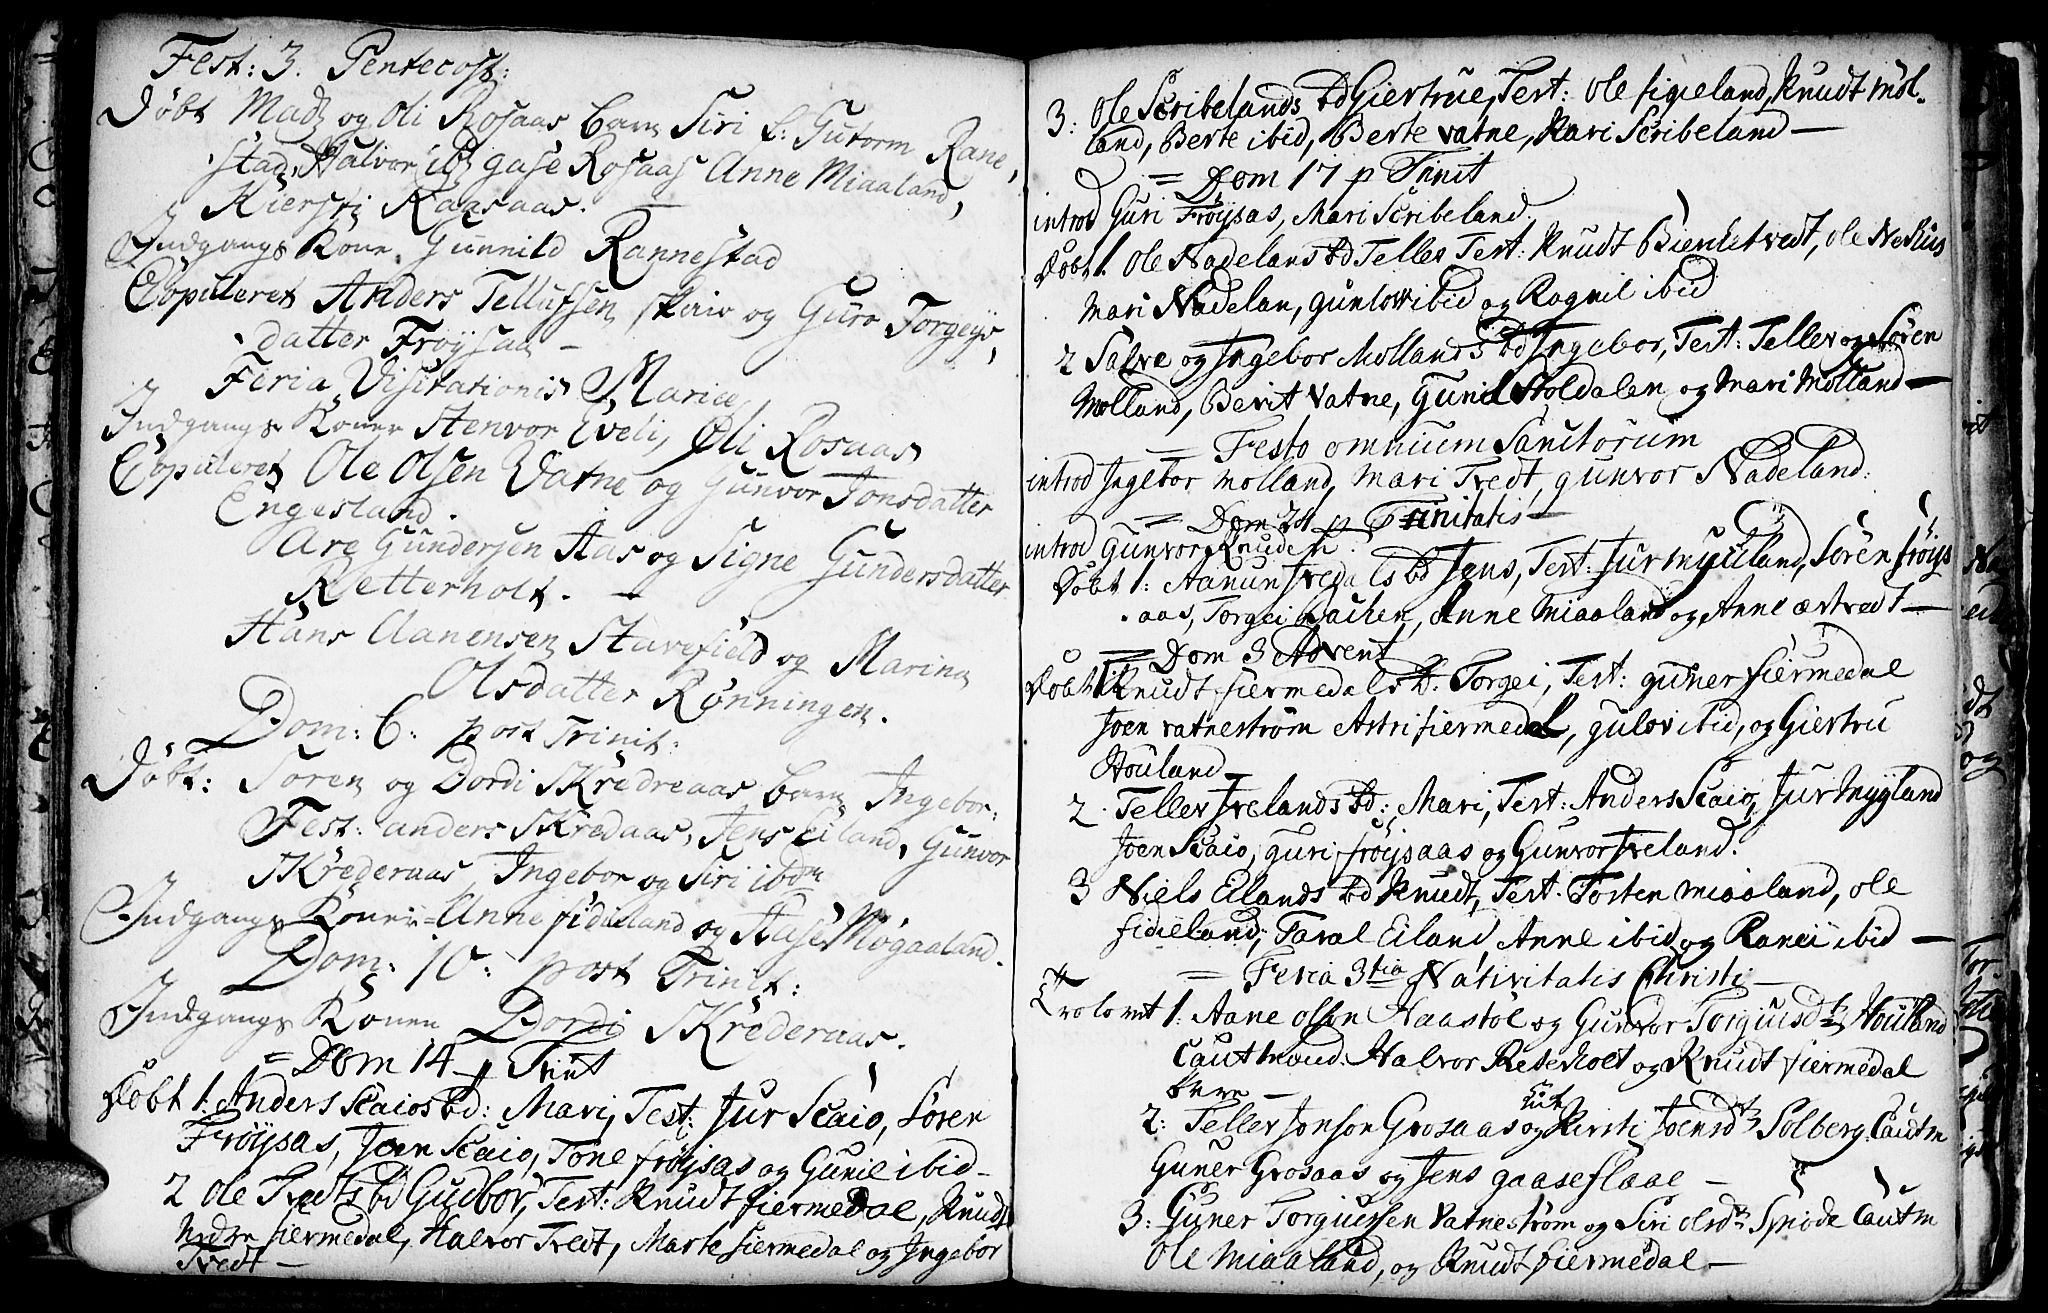 Fest: 3. Pentecost:
Døbt Mads og Oli Rosaas barn Siri f: Gutorm Rane,
stad, Halvor ib: gase Rosaas Anne Miaaland,
Kiersti Raasaas. —
Indgangs Kone. Gunnild Rannestad
Copuleret Anders Tellufsen skaio og Guro Torgeys,
datter Frøysaa —
Feria Visitationis Mariæ
Indgangs Koner Stenvor Eveli, Oli Rosaas
Copuleret Ole Olsen Vatne og Gunvor Jonsdatter
Engesland.
Are Gundersen Aas og Signe Gundersdatter
Retterholt. —
Hans Aanensen Stavefield og Marina
Olsdatter Rønningen.
Dom: 6: post Trinit:
Døbt: Søren og Dordi Skredreaas barn Ingebor:
Test: anders Skredaas, Jens Eiland, Gunvor
Skrederaas Ingebor og Siri ibdm
Indgangs Koner = Anne fidieland og Aase Møgaaland.
Dom: 10: post Trinit:
Indgangs Konen Dordi Skrederaas.
= Dom 14 p Trinit
Døbt 1. Anders Scaios bd: Mari, Test: Jur Scaio, Sören
Fröysas, Joen Scaio, Tone fröysas og Gunil ibid —
2 Ole Tredts bd Gudbor, Test: Knudt fiermedal, Knudt
Nedre fiermedal, Halvor Tredt, Marte fiermedal og Ingebor
Tredt —
3: Ole Scribelands bd Giertrue, Test: Ole figieland, Knudt møl-
land, Berte ibid, Berte vatne, Kari Scribeland —
= Dom 17 p Trinit
introd Guri Fröysas, Mari Scribeland.
Døbt 1. Ole Nadelans bd Telles Test: Knudt Birketvedt, ole Neshus
Mari Nadelan, gunlow ibid og Rognil ibid
2 Salve og Ingebor Mollands bd Ingebor, Test: Tellev og Sören
Molland, Berit Vatne, Gunil Stoldalen og Mari Molland —
= Festo omnium Sanctorum
introd Ingebor molland, Mari Tredt, gunvor Nadeland:
= Dom 24 p Trinitatis —
introd Gunvor
Døbt 1: Aanun Jredals bd Jens, Test: Jur myuland, Sören fröys
aas, Torgei Bachen, Anne Miaaland og Anne ærtvedt —
= Dom 3 Advent
Døbt 1 Knudt fiermedals b: Torgei, Test: guner fiermedal
Joen vatneström Astri fiermedal, gulov ibid, og Giertru
Houland
2. Tellev Jrelands bd: Mari, Test: Anders Scaio, Jur Mygland
Joen Scaio, guri fröysaas og Gunvor Jreland.
3 Niels Eilands bd Knudt, Test: Tosten miaaland, ole
fidieland, Taral Eiland, Anne ibid og Ranei ibid —
= Feria 3tia Nativitatis Christi —
Trolovet 1: Aane olsson Haastöl og Gunvor Torgiusdtr Houland
Cautmænd: Halvor Retterholt og Knudt fiermedal
2: Tellev Jonson Grosaas og Kirsti Joensdtr Solberg: Cautm
Guner Grosaas og Jens gaaseflaae —
3: Guner Torgiussen Vatneström og Siri olsdtr Spöde Cautm
Ole Miaaland, og Knudt fiermedal —